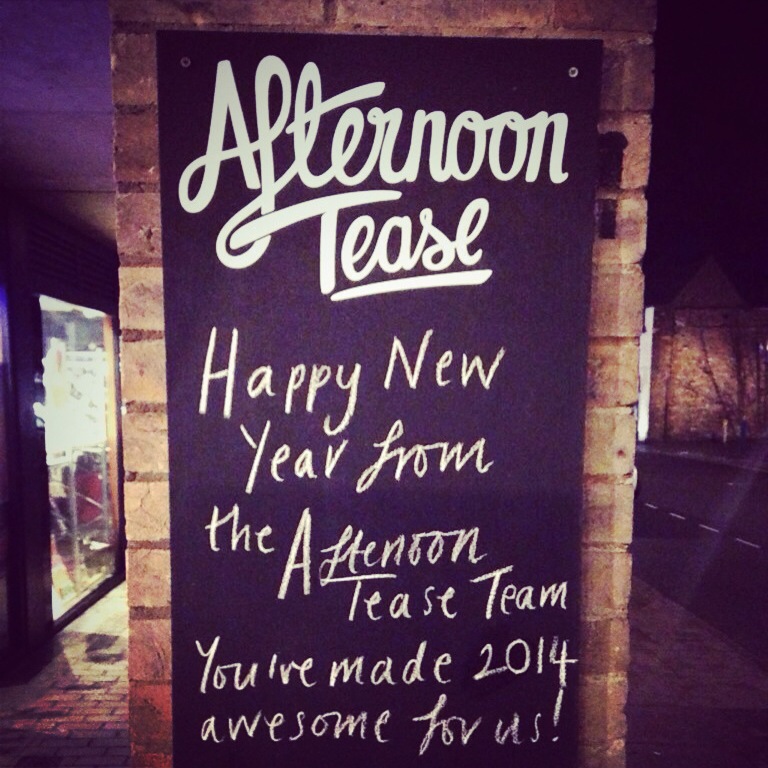 Afternoon
Tease
Happy New
Year from
the Aftenoon
Tease Team
You've made 2014
awesome for us!